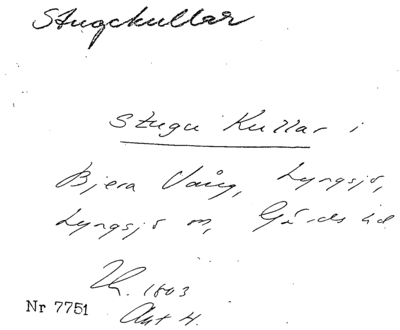 Stugekullar
Stugu Kullar i
Bjera Vång, Lyngsjö,
Lyngsjö sn, Gärds hd
1803
Akt 4.
Nr 7751